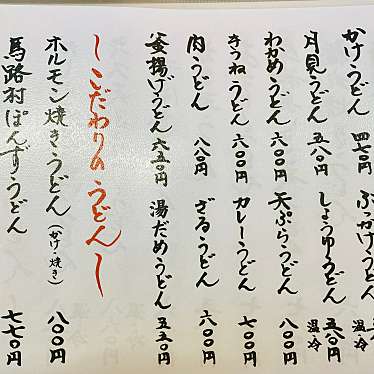 かけうどん 四七〇円
月見うどん 五八〇円
わかめうどん 六〇〇円
きつねうどん 六〇〇円
肉うどん 八〇〇円
釜揚げうどん 六五〇円
ぶっかけうどん 温・冷
しょうゆうどん 五八〇円 温・冷
天ぷらうどん 八〇〇円
カレーうどん 七〇〇円
ざるうどん 六〇〇円
湯だめうどん 五五〇円
〜こだわりのうどん〜
ホルモン焼きうどん(かけ・焼き) 八〇〇円
馬路村ぽんずうどん 七七〇円